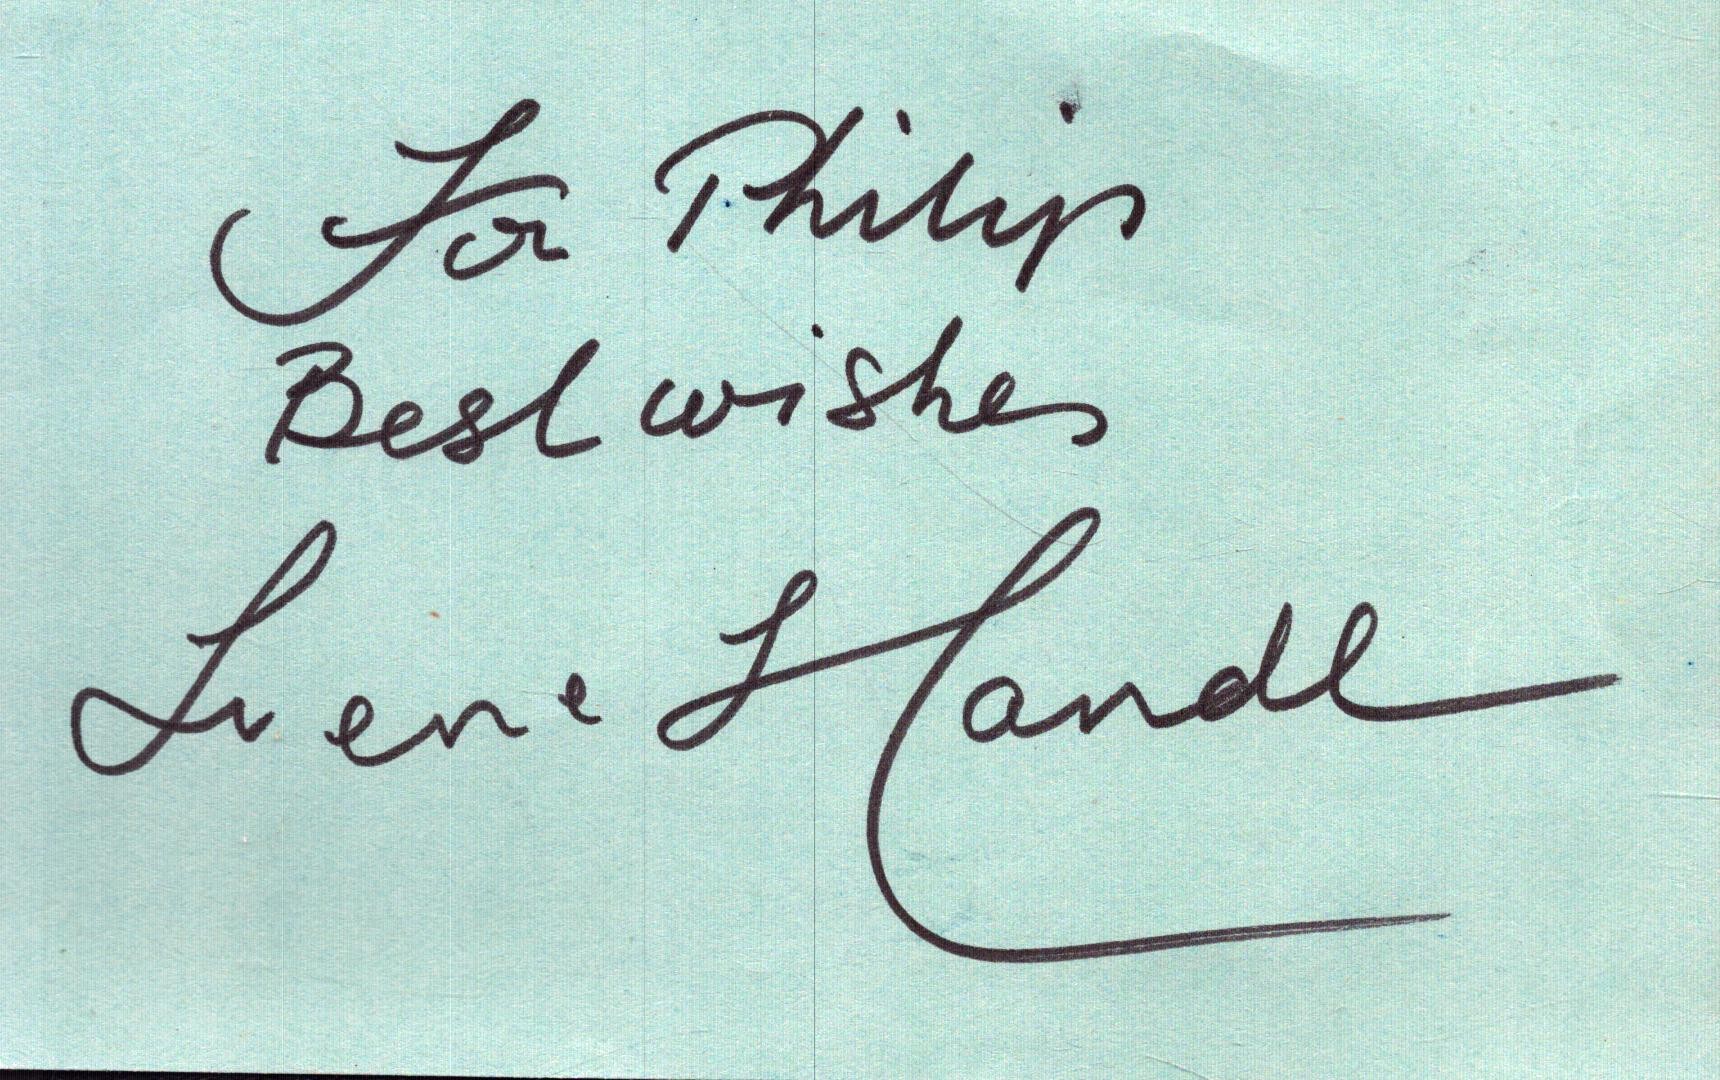 For Philip
Best wishes
Irene Handl